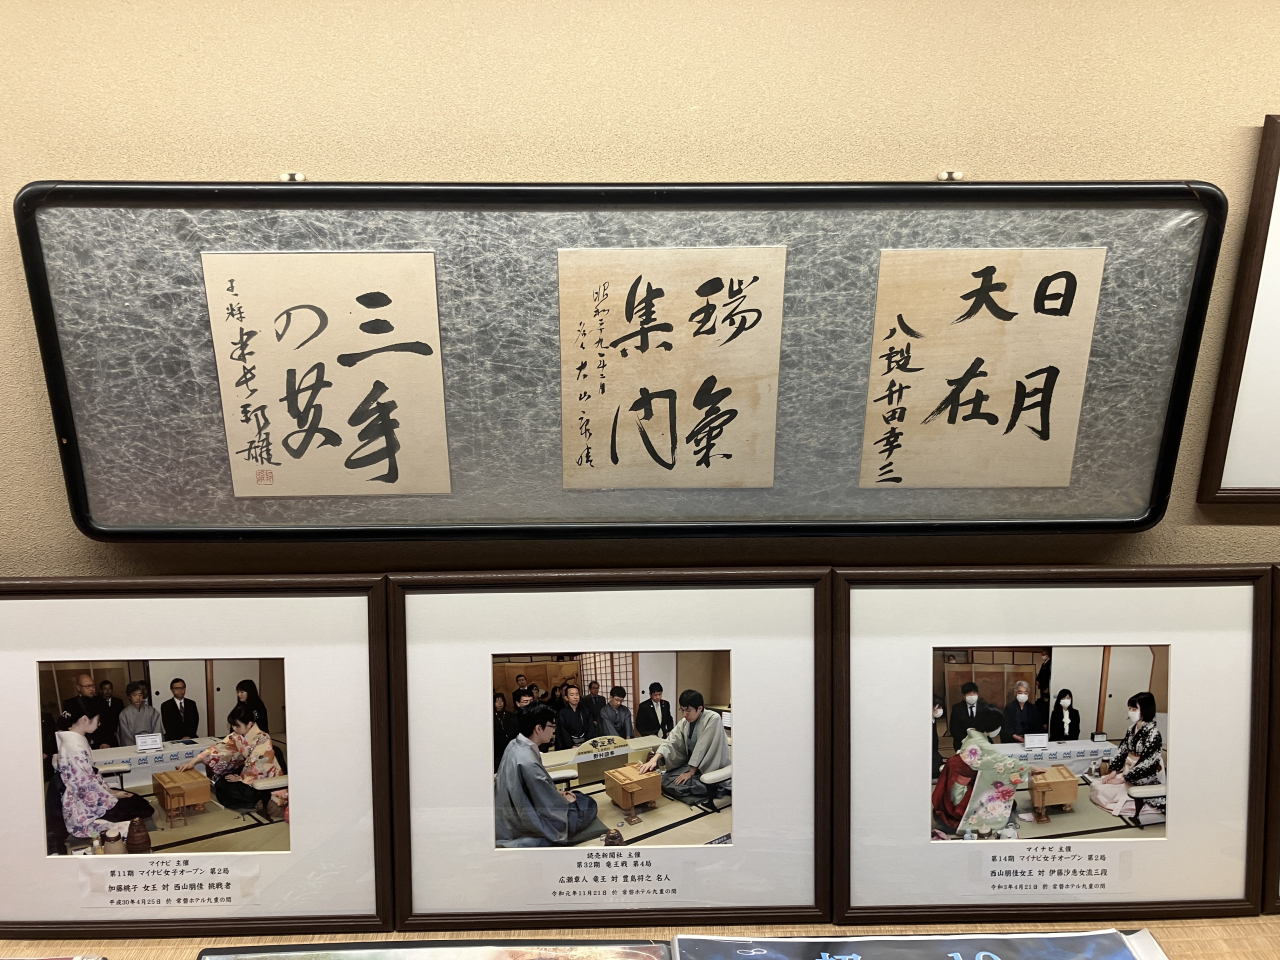 日月
天在
八段升田幸三
瑞氣
集門
昭和二十九年二月
名人 大山康晴
三手
の父
王将
米長邦雄
マイナビ 主催
第11期 マイナビ女子オープン 第2局
加藤桃子 女王 対 西山朋佳 挑戦者
平成30年4月25日 於 常磐ホテル九重の間
読売新聞社 主催
第32期 竜王戦 第4局
広瀬章人 竜王 対 豊島将之 名人
令和元年11月21日 於 常磐ホテル九重の間
マイナビ 主催
第14期 マイナビ女子オープン 第2局
西山朋佳女王 対 伊藤沙恵女流三段
令和3年4月21日 於 常磐ホテル九重の間
竜王戦
野村證券